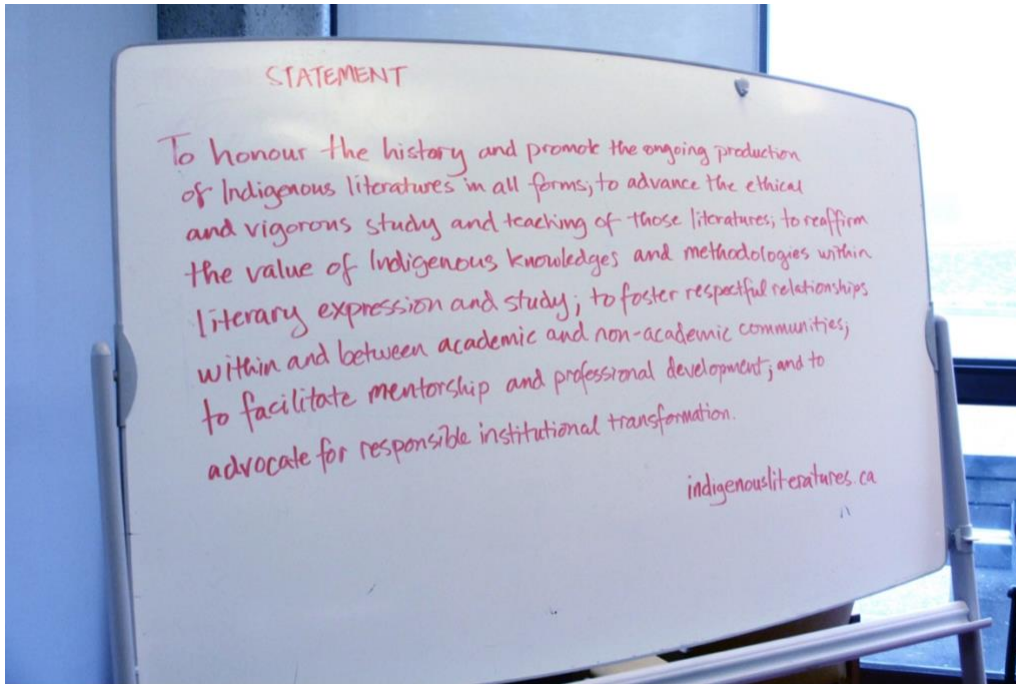 STATEMENT
To honour the history and promote the ongoing production
of Indigenous literatures in all forms; to advance the ethical
and vigorous study and teaching of those literatures; to reaffirm
the value of Indigenous knowledges and methodologies within
literary expression and study; to foster respectful relationships
within and between academic and non-academic communities;
to facilitate mentorship and professional development; and to
advocate for responsible institutional transformation.
indigenousliteratures.ca